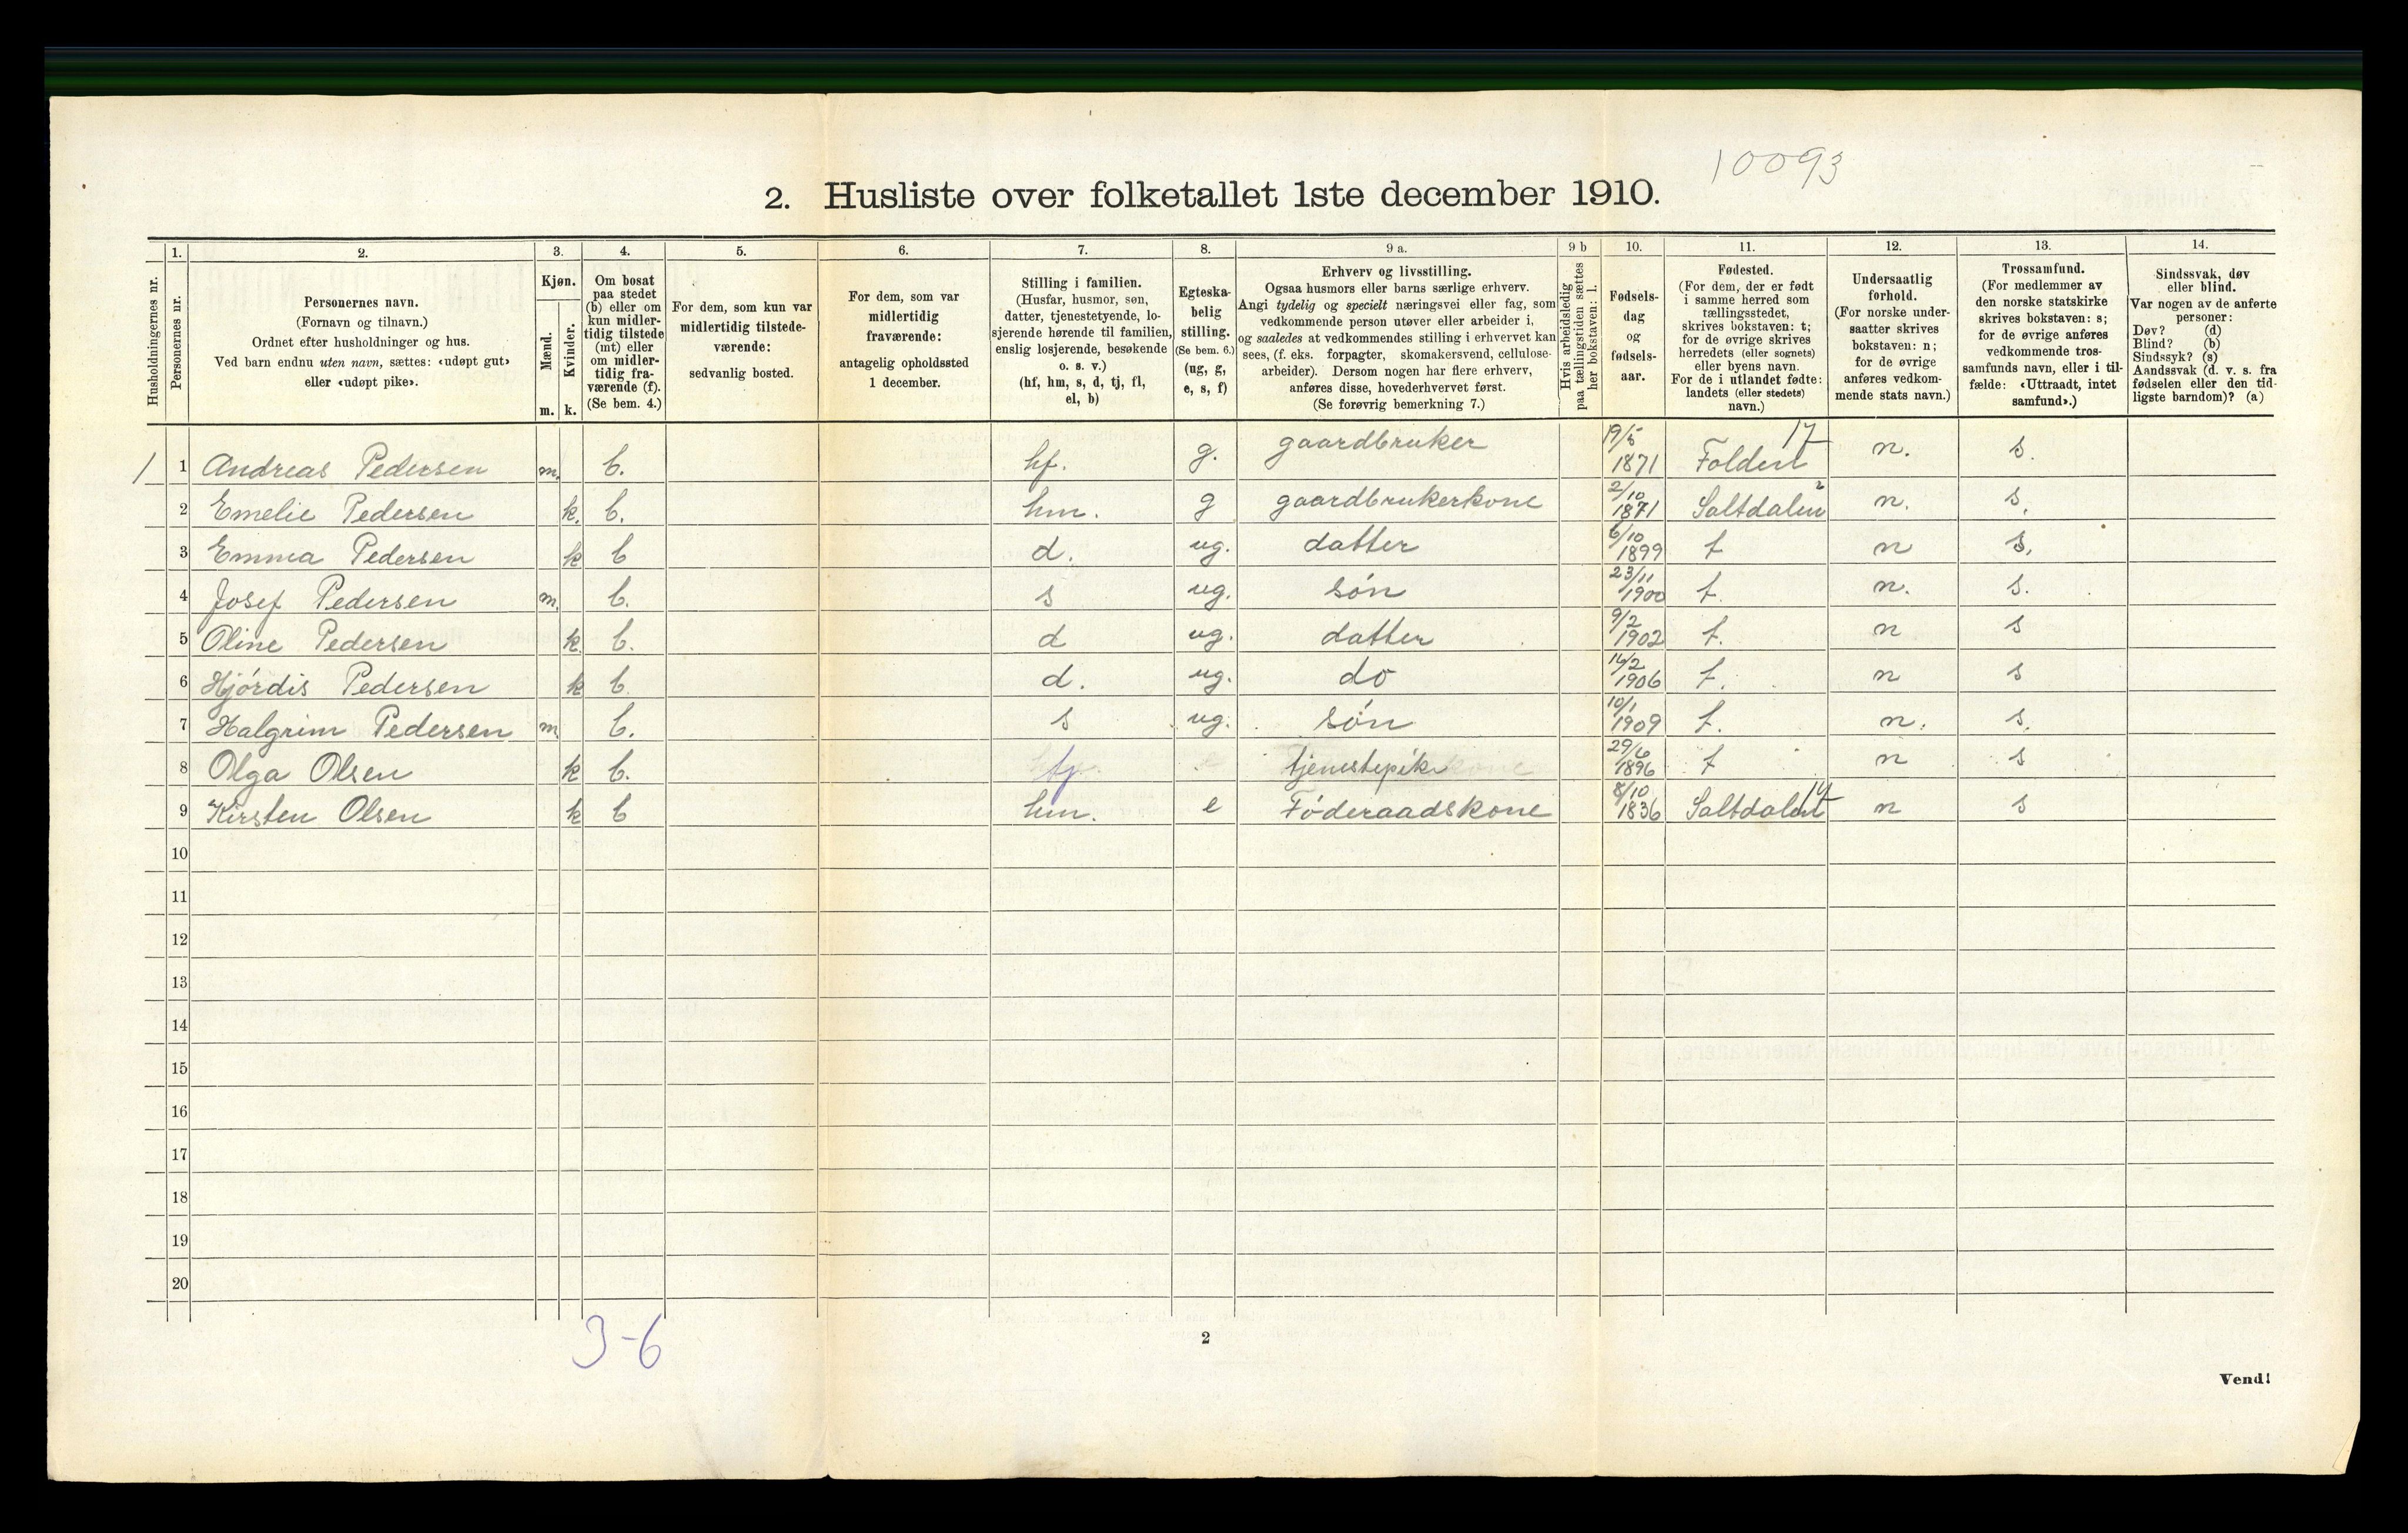 10093
2. Husliste over folketallet 1ste december 1910.
Husholdningernes nr.
1.
Personernes nr.
2.
Personernes navn.
(Fornavn og tilnavn.)
Ordnet efter husholdninger og hus.
Ved barn endnu uten navn, sættes: «udøpt gut»
eller «udøpt pike».
3.
Kjøn.
Mænd.
Kvinder.
m. k.
4.
Om bosat
paa stedet
(b) eller om
kun midler-
tidig tilstede
(mt) eller
om midler-
tidig fra-
værende (f).
(Se bem. 4.)
5.
For dem, som kun var
midlertidig tilstede-
værende:
sedvanlig bosted.
6.
For dem, som var
midlertidig
fraværende:
antagelig opholdssted
1 december.
7.
Stilling i familien.
(Husfar, husmor, søn,
datter, tjenestetyende, lo-
sjerende hørende til familien,
enslig losjerende, besøkende
o. s. v.)
(hf, hm, s, d, tj, fl,
el, b)
8.
Egteska-
belig
stilling.
(Se bem. 6.)
(ug, g,
e, s, f)
9 a.
Erhverv og livsstilling.
Ogsaa husmors eller barns særlige erhverv.
Angi tydelig og specielt næringsvei eller fag, som
vedkommende person utøver eller arbeider i,
og saaledes at vedkommendes stilling i erhvervet kan
sees, (f. eks. forpagter, skomakersvend, cellulose-
arbeider). Dersom nogen har flere erhverv,
anføres disse, hovederhvervet først.
(Se forøvrig bemerkning 7.)
9 b
Hvis arbeidsledig
paa tællingstiden sættes
her bokstaven: l.
10.
Fødsels-
dag
og
fødsels-
aar.
11.
Fødested.
(For dem, der er født
i samme herred som
tællingsstedet,
skrives bokstaven: t;
for de øvrige skrives
herredets (eller sognets)
eller byens navn.
For de i utlandet fødte:
landets (eller stedets)
navn.)
12.
Undersaatlig
forhold.
(For norske under-
saatter skrives
bokstaven: n;
for de øvrige
anføres vedkom-
mende stats navn.)
13.
Trossamfund.
(For medlemmer av
den norske statskirke
skrives bokstaven: s;
for de øvrige anføres
vedkommende tros-
samfunds navn, eller i til-
fælde: «Uttraadt, intet
samfund».)
14.
Sindssvak, døv
eller blind.
Var nogen av de anførte
personer:
Døv? (d)
Blind? (b)
Sindssyk? (s)
Aandssvak (d. v. s. fra
fødselen eller den tid-
ligste barndom)? (a)
1 1 Andreas Pedersen m. b. hf. g. gaardbruker 19/5 1871 Folden 17 n. s.
2 Emelie Pedersen k. b. hm. g gaardbrukerkone 2/10 1871 Saltdalen n. s.
3 Emma Pedersen k b d. ug. datter 6/10 1899 t n s.
4 Josef Pedersen m. b. s ug. søn 23/11 1900 t. n. s.
5 Oline Pedersen k. b. d ug. datter 9/2 1902 t. n s
6 Hjørdis Pedersen k b. d. ug. do 16/2 1906 t. n s
7 Halgrim Pedersen m. b. s ug. søn 10/1 1909 t. n. s.
8 Olga Olsen k b. tj tjenestepike 29/6 1896 t n s
9 Kirsten Olsen k b hm. e Føderaadskone 8/10 1836 Saltdalen n s
10
11
12
13
14
15
16
17
18
19
20
3-6
2
Vend!